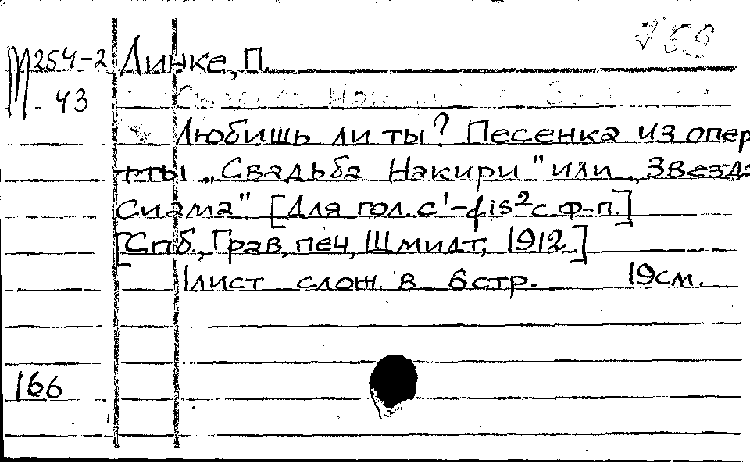 М254-2 Линке, П.
-43
Любишь ли ты? Песенка из опер
тты „Свадьба Накири" или „Звезда
Сиама". [Для гол. c¹-fis² с ф-п.]
[Спб., Грав. печ. Шмидт, 1912.]
1 лист слож. в 6 стр. 19 см.
166